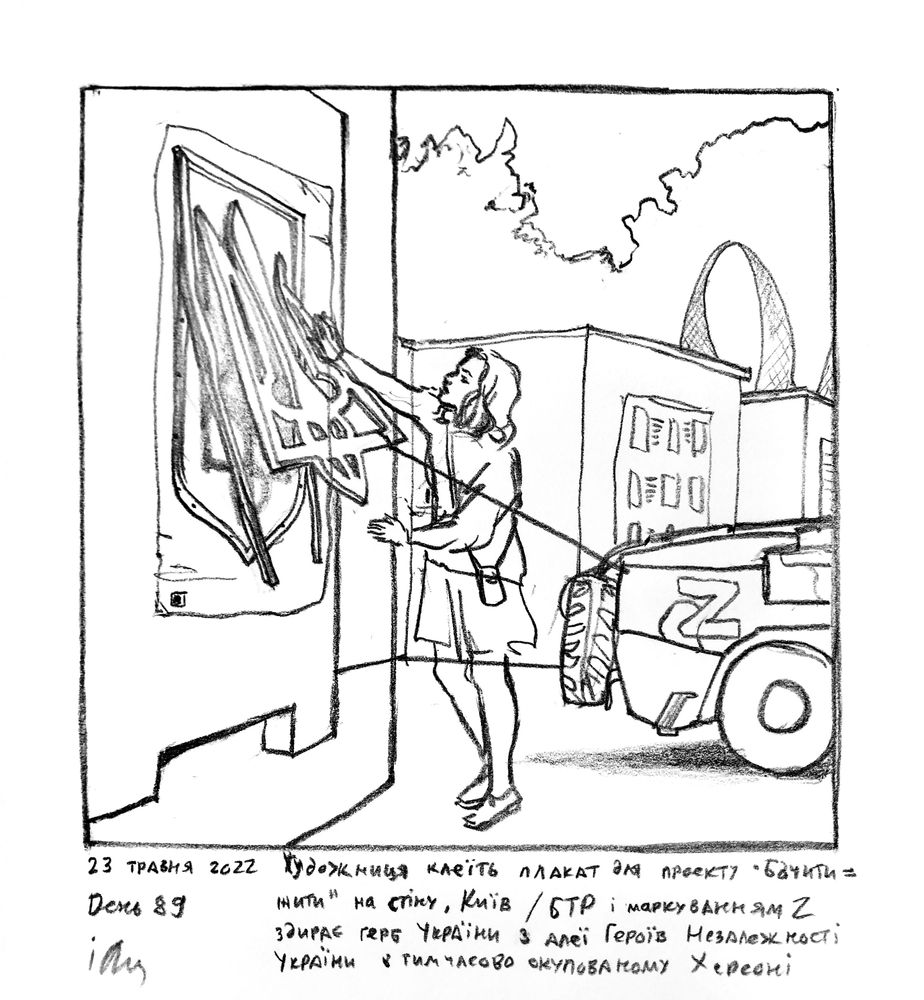 Z
23 травня 2022 Художниця клеїть плакат для проекту "Бачити =
День 89 жити" на стіну, Київ / БТР і маркуванням Z
здирає герб України з алеї Героїв Незалежності
України в тимчасово окупованому Херсоні